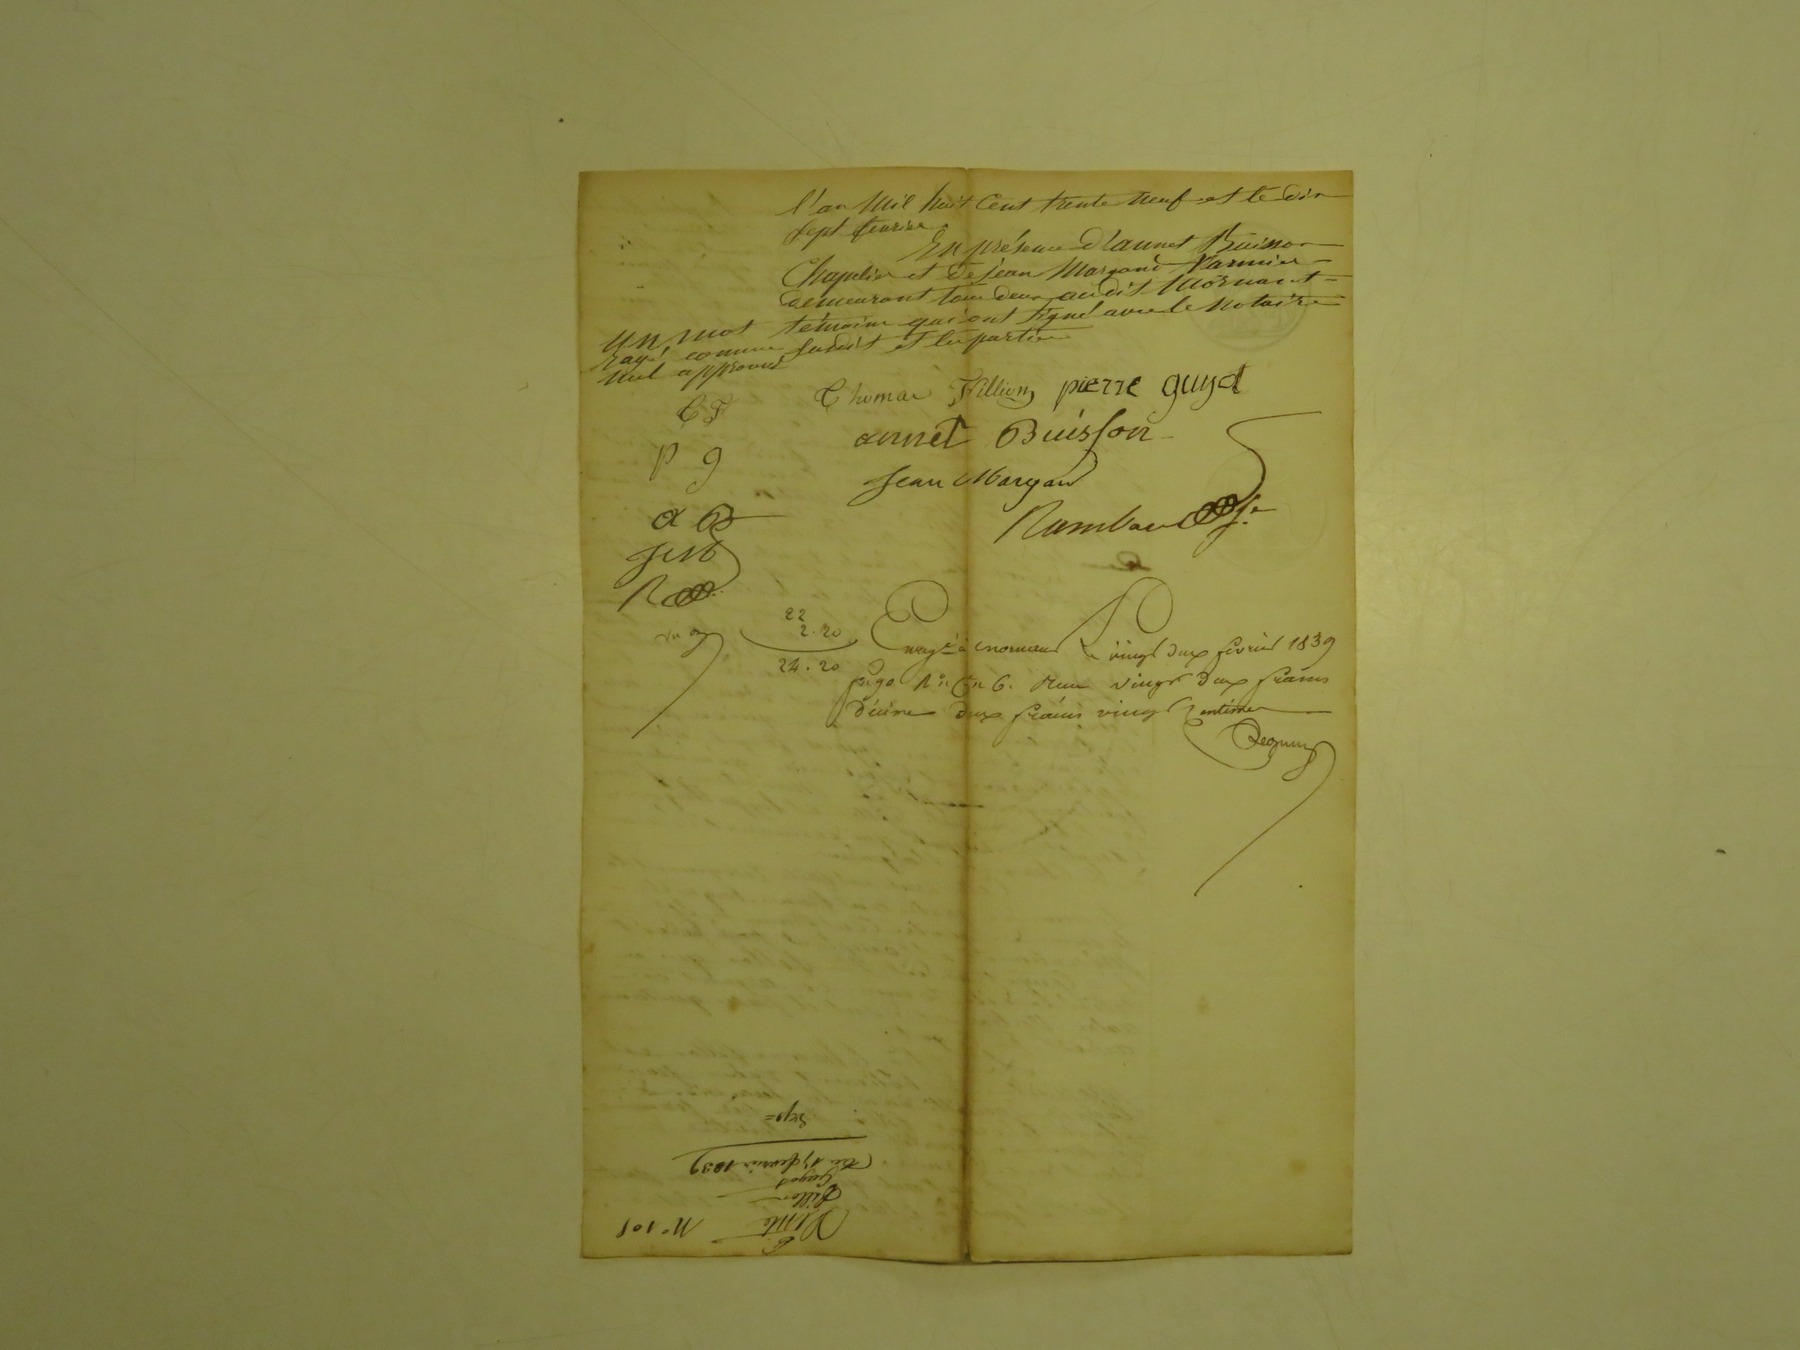 l'an mil huit cent trente neuf et le dix
sept fevrier
En présence d'annet Buisson
Chapelier et de jean Margand
demeurant tous deux audit Mornant
témoins qui ont signé avec le Notaire
susdit et les parties
un mot
rayé comme
nul approuvé
Thomas Fillion pierre guyot
annet Buisson
Jean Margan
C F
P g
a B
J M
R
22
2.20
24.20
à mornant le vingt deux février 1839
6. vingt deux francs
décime deux francs vingt centimes
N° 108
Vente
Fillon
Guyot
Du 17 fevrier 1839
Exp=